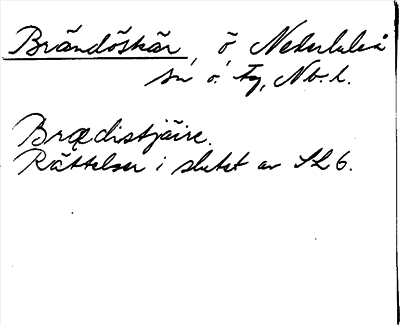 Brändöskär, ö, Nederluleå
sn o. tg, Nb. l.
Brædistjäire.
Rättelser i slutet av SL 6.